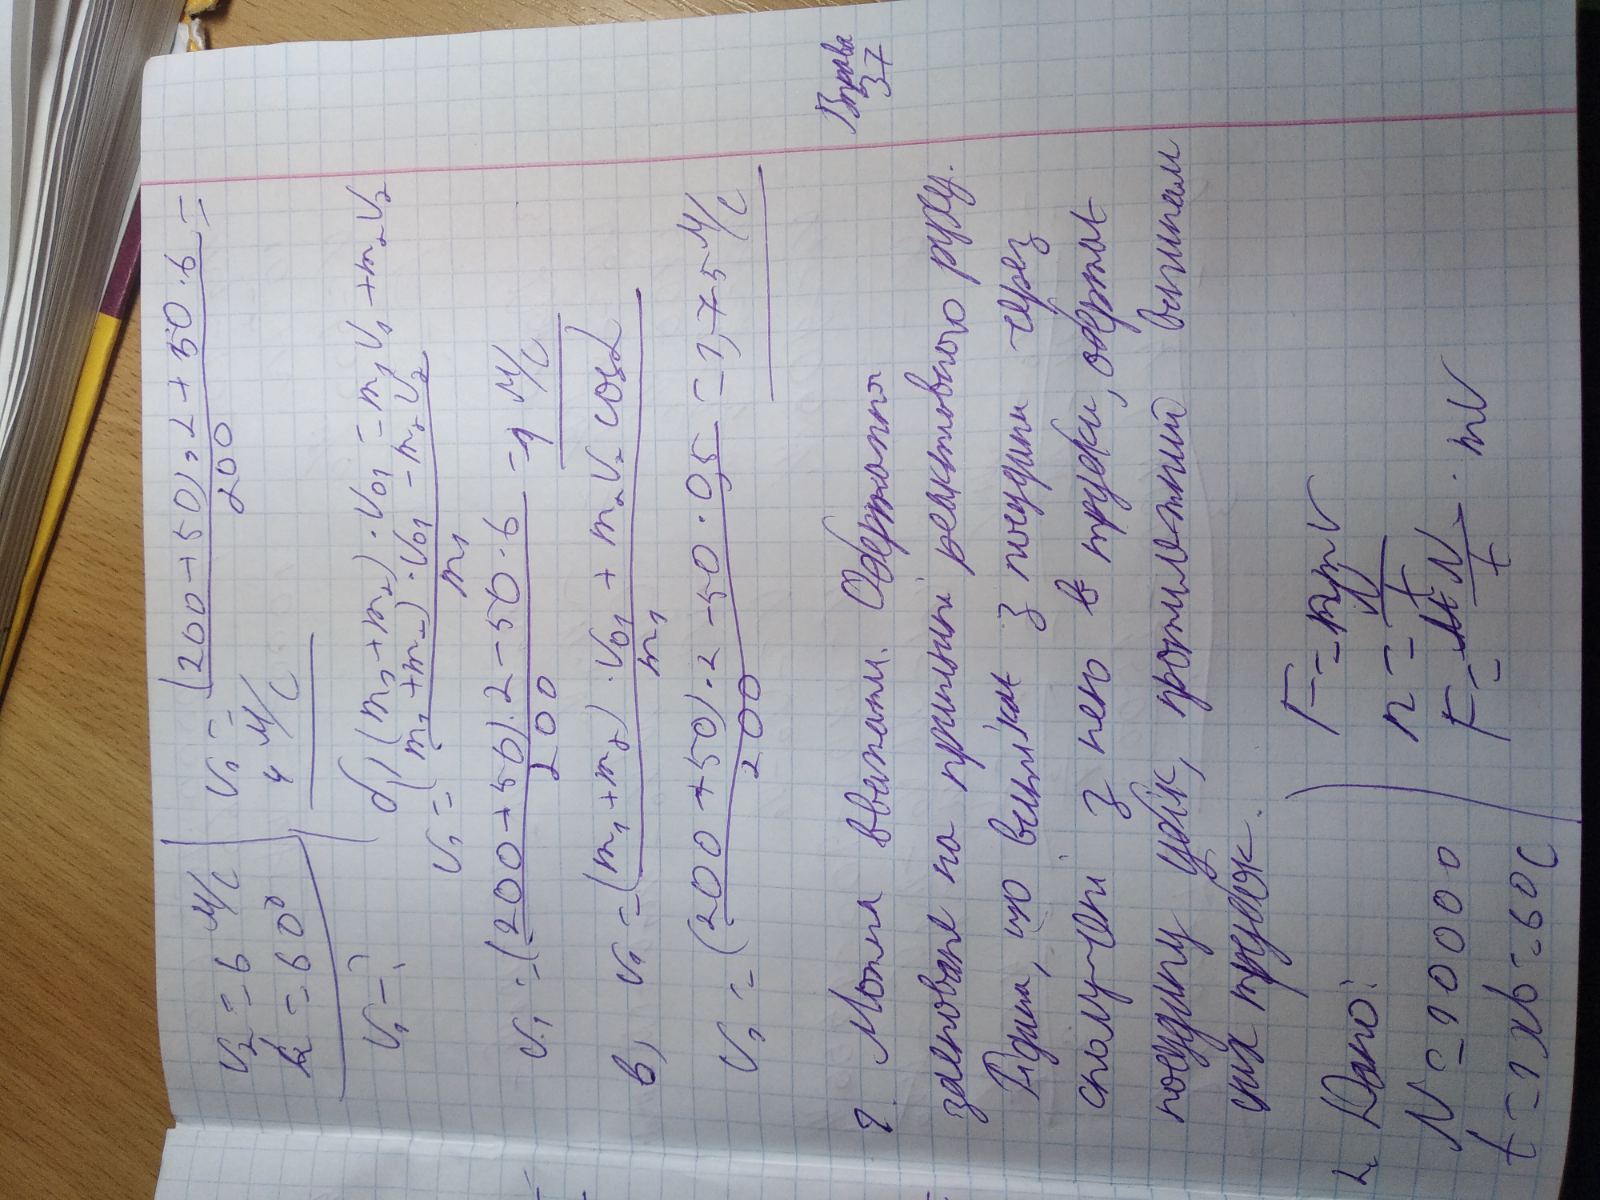 v₂ = 6 м/с
α = 60°
v₁ - ?
v₁ = (200+50)·2+50·6 / 200 =
4 м/с
б) (m₁+m₂)·v₀₁ = m₁v₁ + m₂v₂
v₁ = (m₁+m₂)·v₀₁ - m₂v₂ / m₁
v₁ = (200+50)·2-50·6 / 200 = 1 м/с
в) v₁ = (m₁+m₂)·v₀₁ + m₂v₂ cosα / m₁
v₁ = (200+50)·2-50·0,5 / 200 = 1,75 м/с
Вправа
37
Можна вважати. Обертання
засноване на принципі реактивного руху.
Рідина, що витікає з посудини через
сполучені з нею в трубки, обертає
посудину у бік, протилежний вигинам
цих трубок.
2. Дано:
N = 1000
t = 1 хв = 60 с
F = nmv
n = N/t
F = N/t · mv